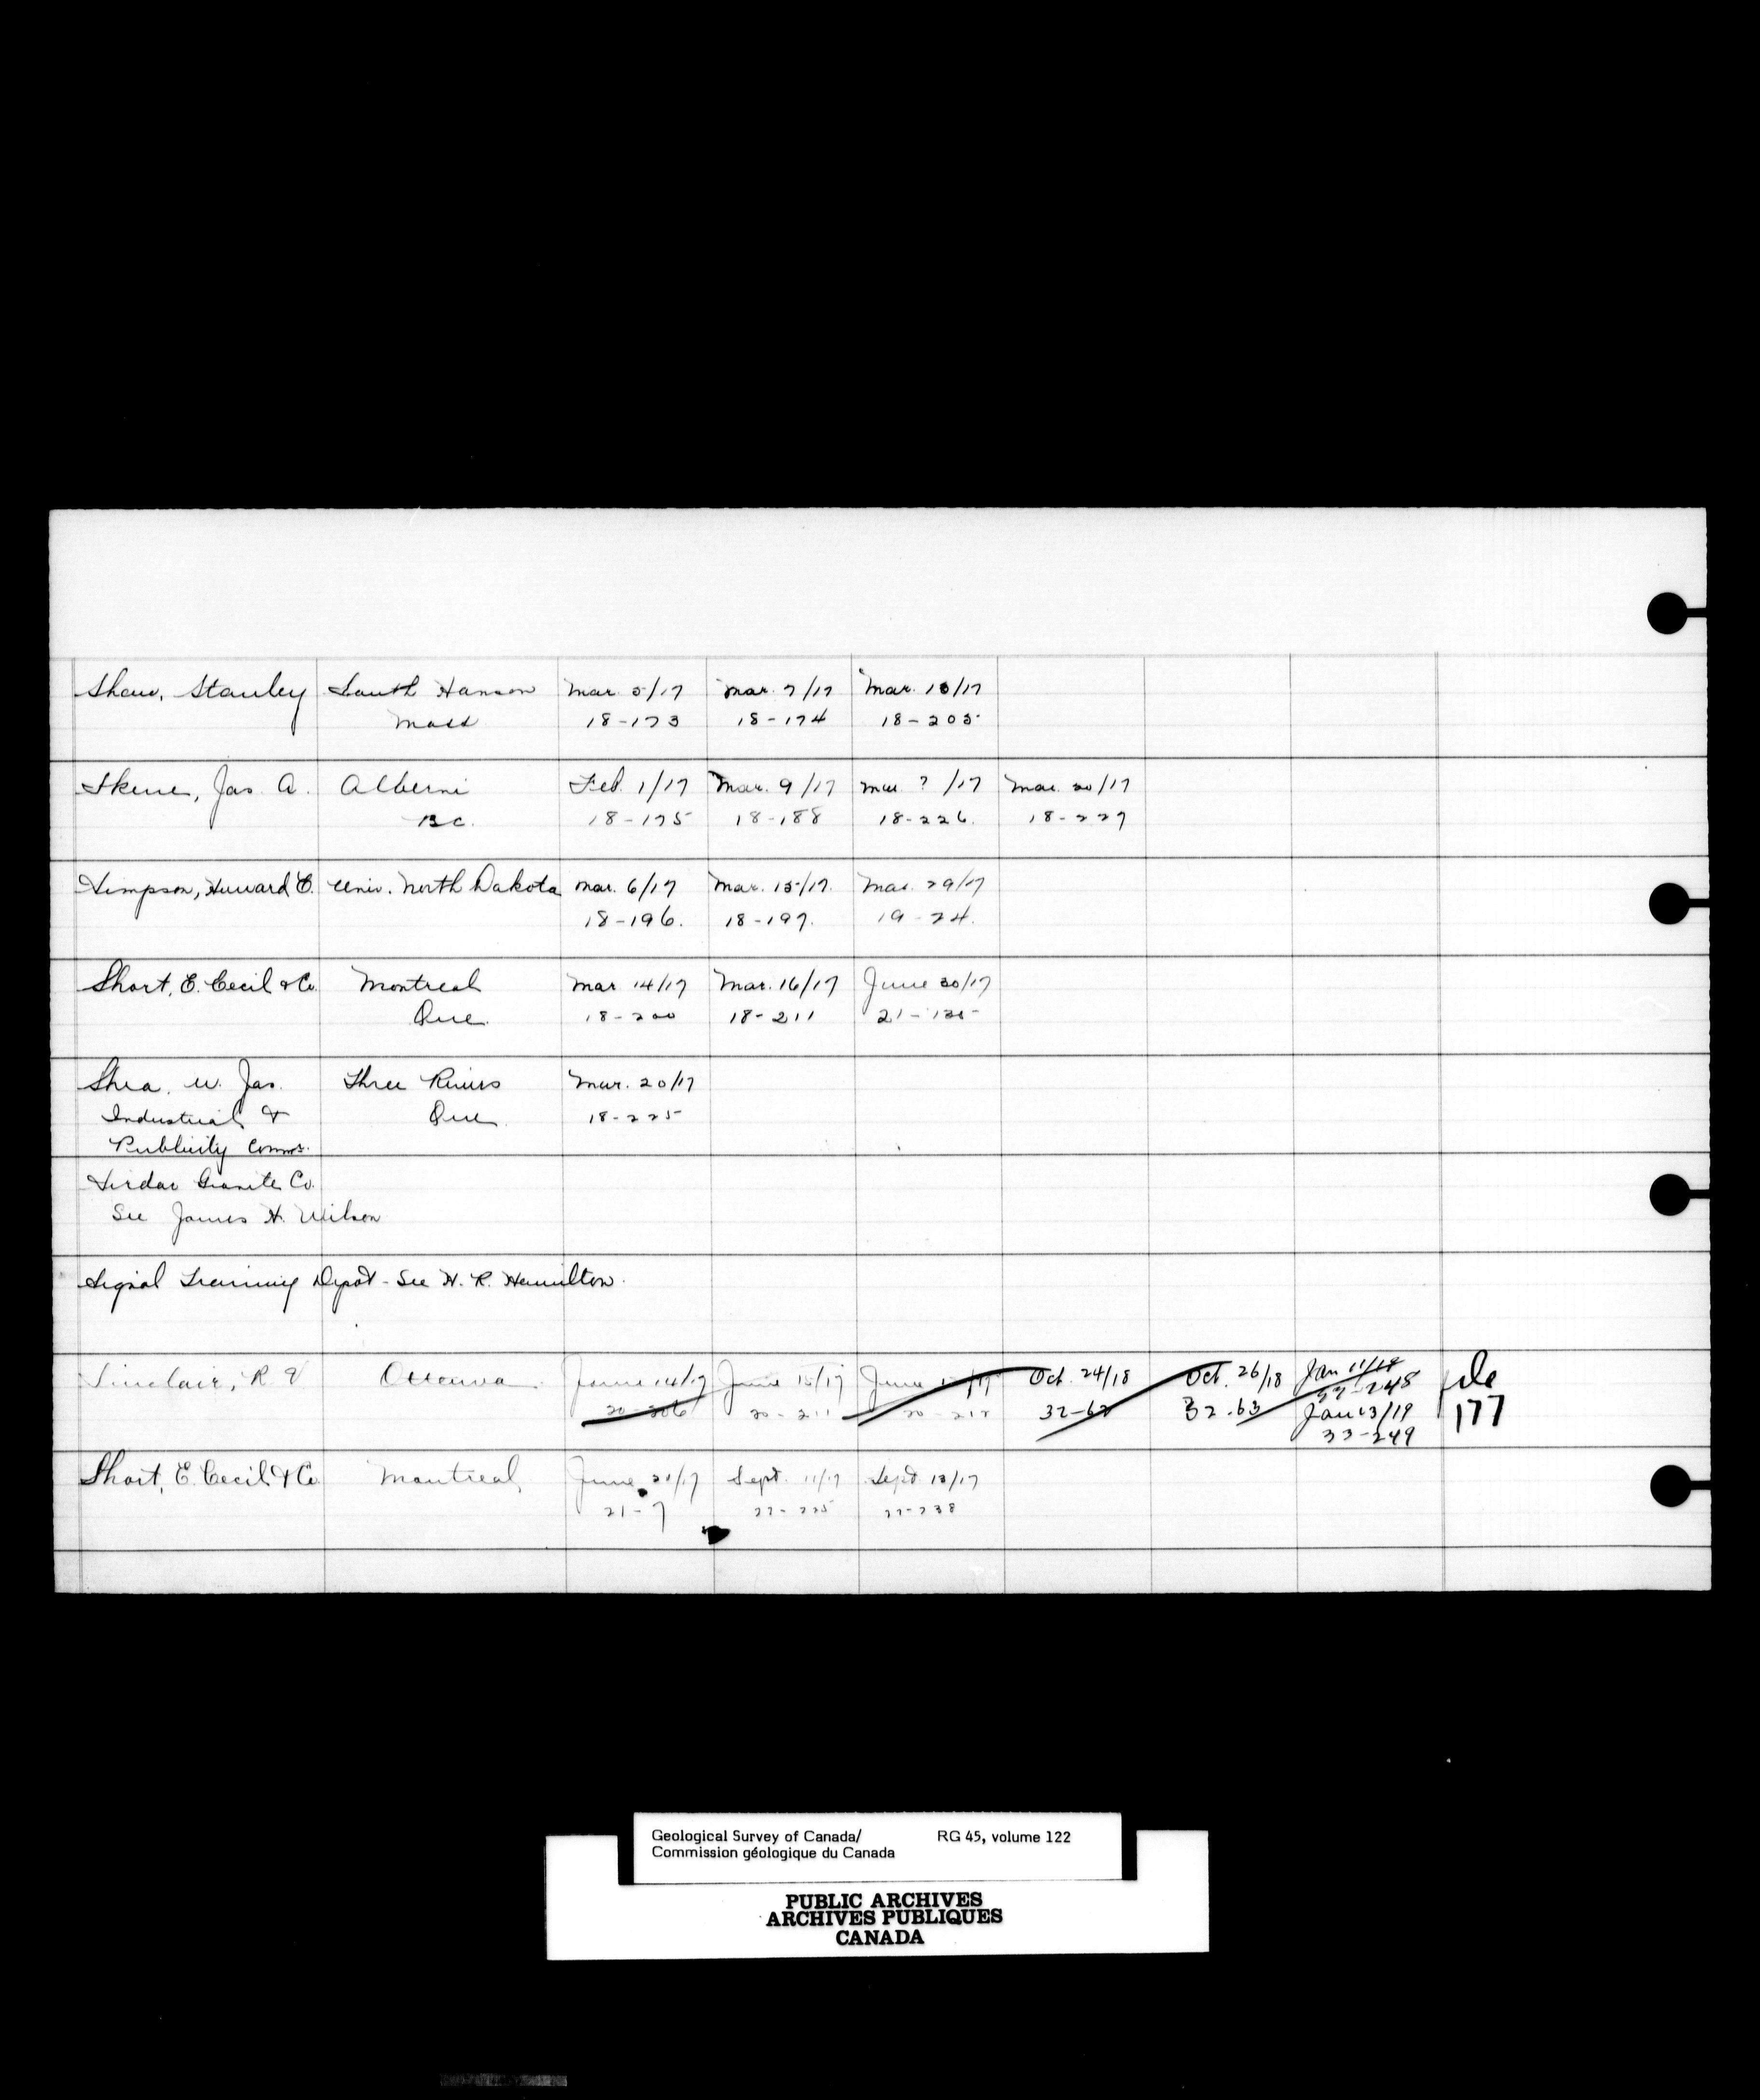 Shaw, Stanley South Hanson Mar. 5/17 Mar. 7/17 Mar. 13/17
Mass 18-173 18-174 18-205
Skene, Jas. A. Alberni Feb. 1/17 Mar. 9/17 Mar ? /17 Mar. 20/17
B.C. 18-175 18-188 18-226. 18-227
Simpson, Howard E. Univ. North Dakota Mar. 6/17 Mar. 15/17. Mar. 29/17
18-196. 18-197. 19-24.
Short, E. Cecil & Co. Montreal Mar 14/17 Mar. 16/17 June 30/17
Que. 18-200 18-211 21-135
Shea, W. Jas. Three Rivers Mar. 20/17
Industrial & Que. 18-225
Publicity Commr.
Sirdar Granite Co.
See James H. Wilson
Signal Training Depot - See H. R. Hamilton.
Sinclair, R. V Ottawa June 14/17 June 15/17 June /17 Oct. 24/18 Oct. 26/18 Jan 11/19 file
20-206 20-211 20-212 32-62 32-63 33-248 177
Jan 13/19
33-249
Short, E. Cecil & Co Montreal June 21/17 Sept. 11/17 Sept 13/17
21-7 22-225 22-238
Geological Survey of Canada/ RG 45, volume 122
Commission géologique du Canada
PUBLIC ARCHIVES
ARCHIVES PUBLIQUES
CANADA